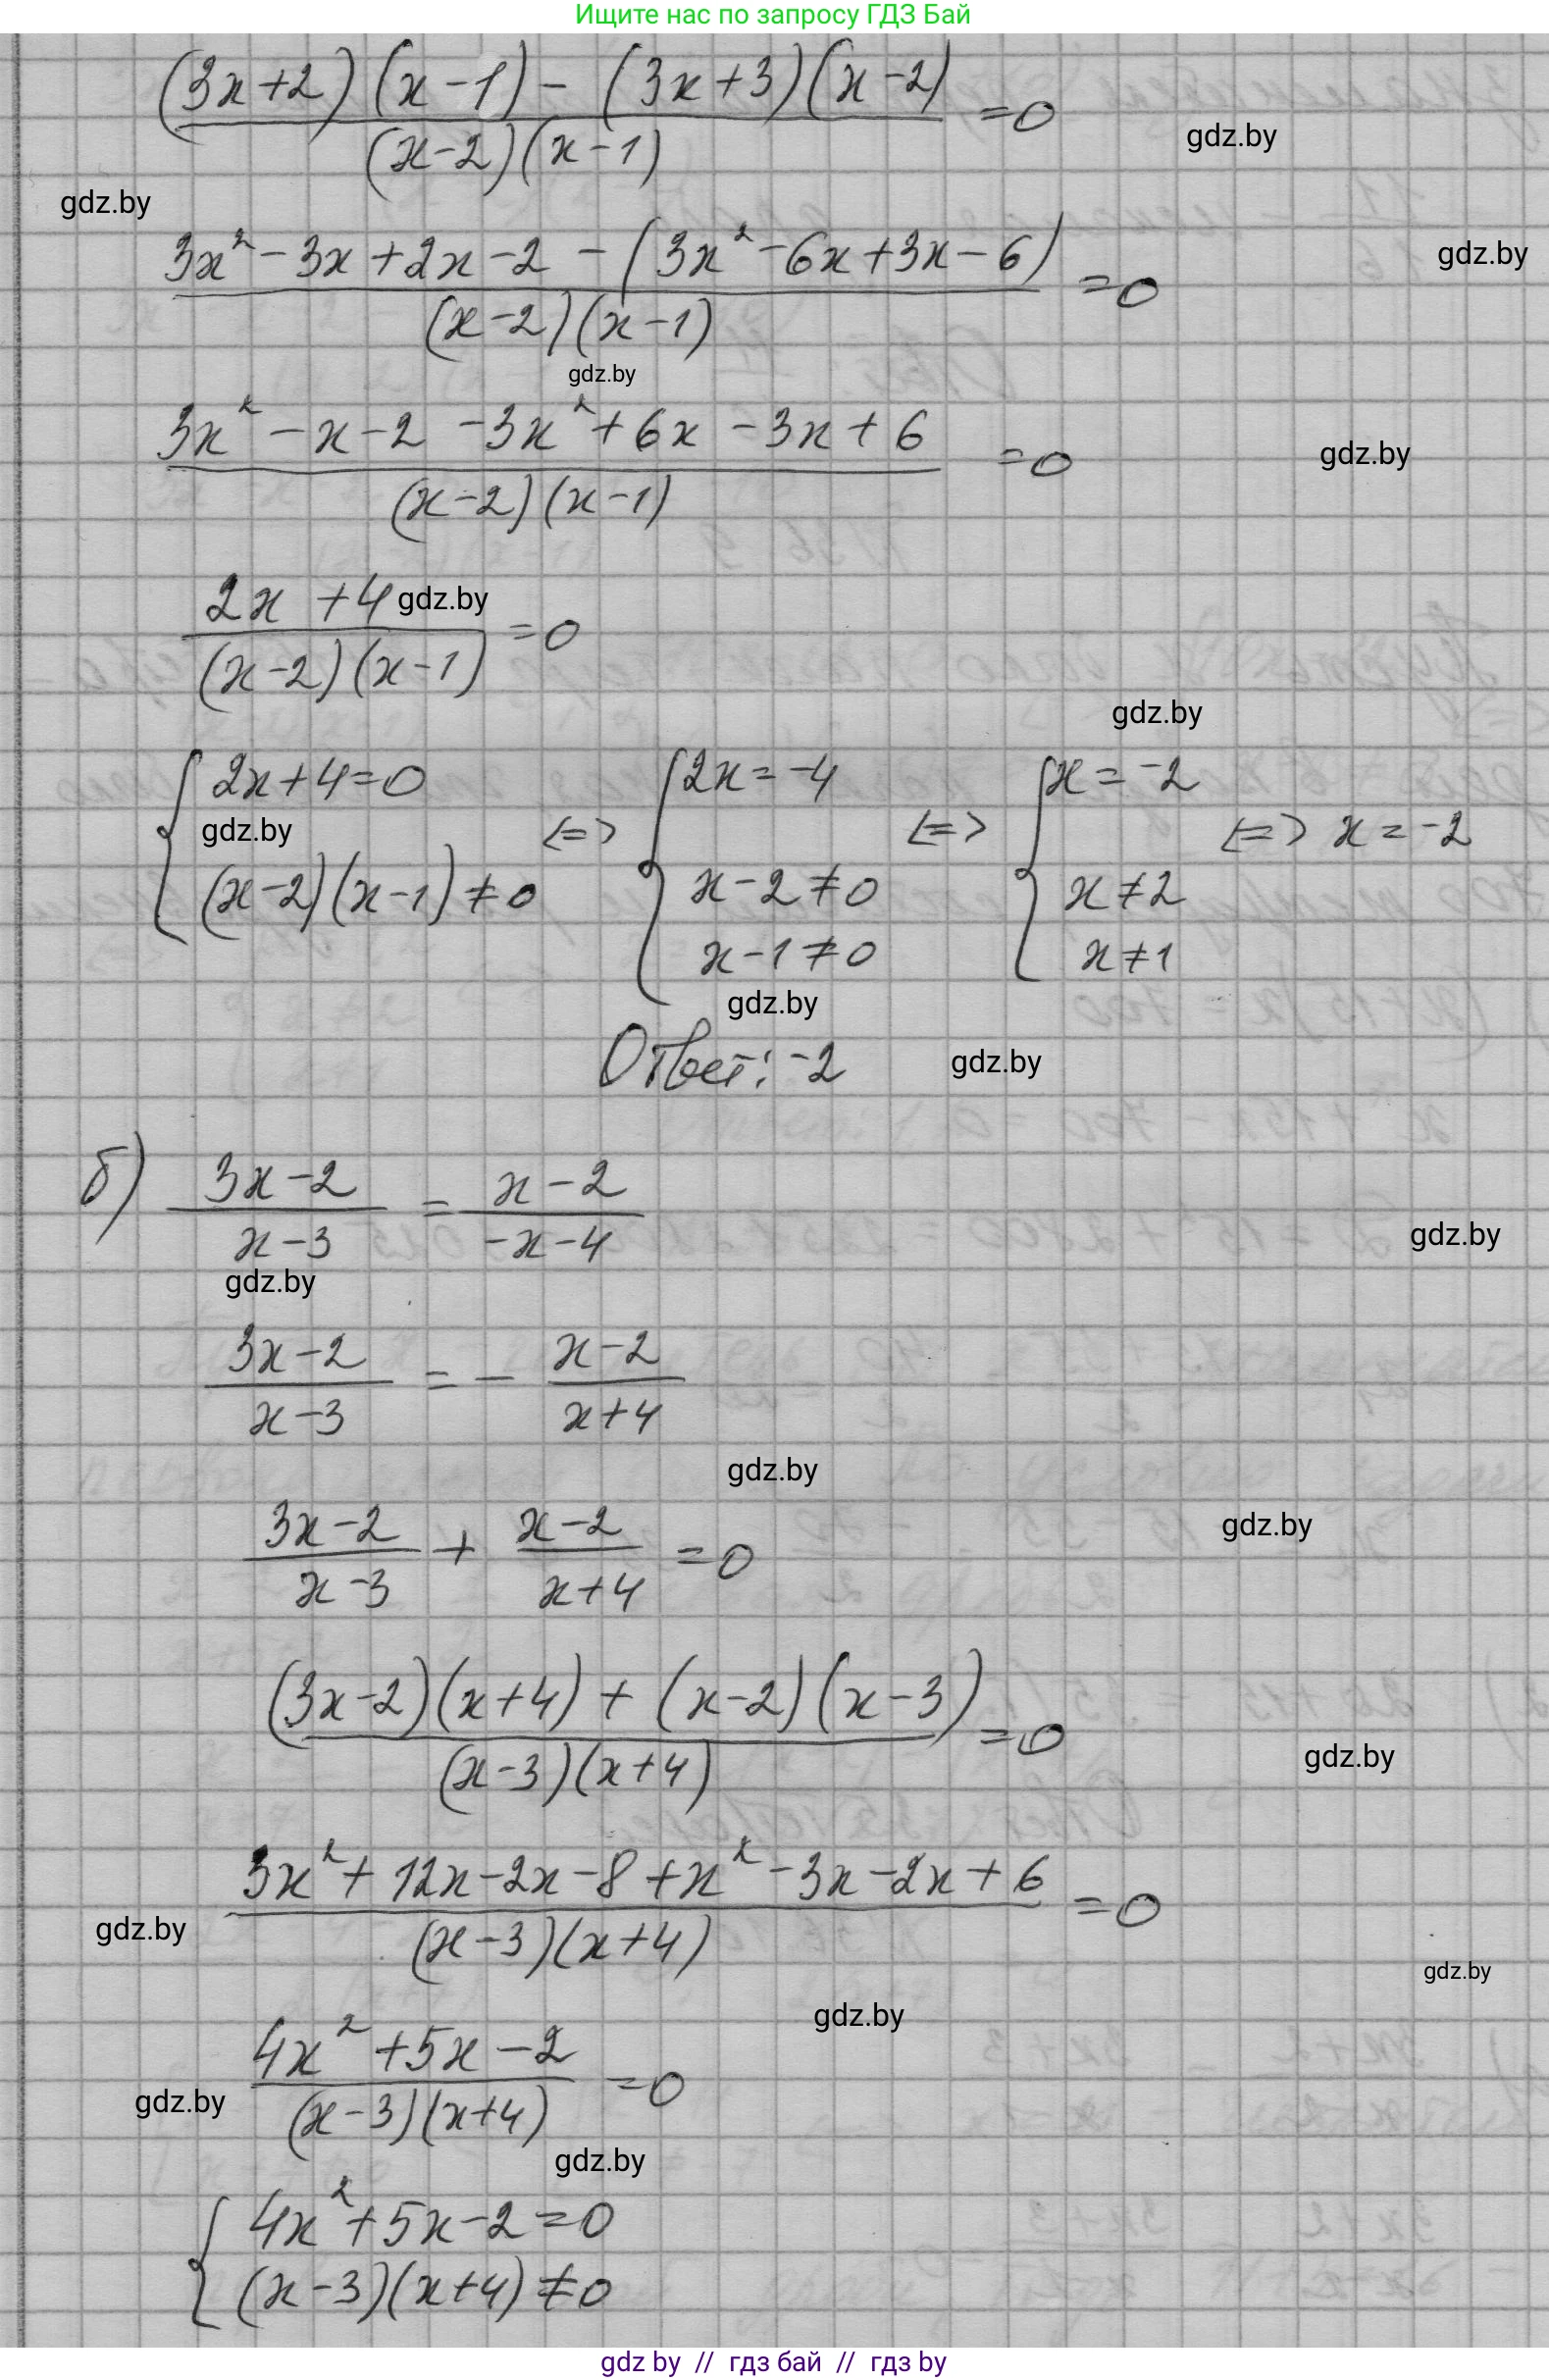 Ищите нас по запросу ГДЗ Бай
((3x+2)(x-1) - (3x+3)(x-2))/((x-2)(x-1)) = 0
gdz.by
gdz.by
(3x² - 3x + 2x - 2 - (3x² - 6x + 3x - 6))/((x-2)(x-1)) = 0
gdz.by
gdz.by
(3x² - x - 2 - 3x² + 6x - 3x + 6)/((x-2)(x-1)) = 0
gdz.by
(2x + 4)/((x-2)(x-1)) = 0
gdz.by
gdz.by
{ 2x+4=0 ; (x-2)(x-1) ≠ 0 <=> { 2x = -4 ; x-2 ≠ 0 ; x-1 ≠ 0 <=> { x = -2 ; x ≠ 2 ; x ≠ 1 <=> x = -2
gdz.by
gdz.by
Ответ: -2
gdz.by
б) (3x-2)/(x-3) = (x-2)/(-x-4)
gdz.by
gdz.by
(3x-2)/(x-3) = - (x-2)/(x+4)
gdz.by
(3x-2)/(x-3) + (x-2)/(x+4) = 0
gdz.by
((3x-2)(x+4) + (x-2)(x-3))/((x-3)(x+4)) = 0
gdz.by
(3x² + 12x - 2x - 8 + x² - 3x - 2x + 6)/((x-3)(x+4)) = 0
gdz.by
gdz.by
gdz.by
(4x² + 5x - 2)/((x-3)(x+4)) = 0
gdz.by
gdz.by
{ 4x² + 5x - 2 = 0
(x-3)(x+4) ≠ 0
gdz by // гдз бай // гдз by